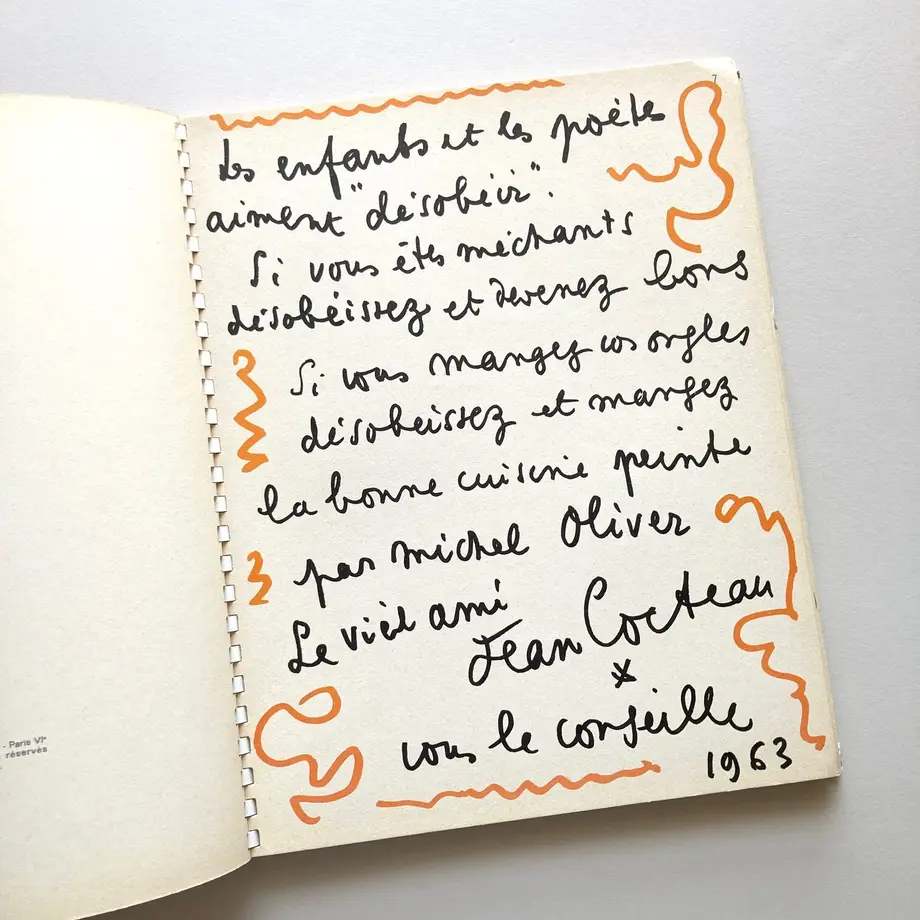 - Paris VIe
réservés
7
Les enfants et les poètes
aiment "désobéir".
Si vous êtes méchants
désobéissez et devenez bons
Si vous mangez vos ongles
désobeissez et mangez
la bonne cuisine peinte
par michel Oliver
Le vieil ami
Jean Cocteau
*
vous le conseille
1963